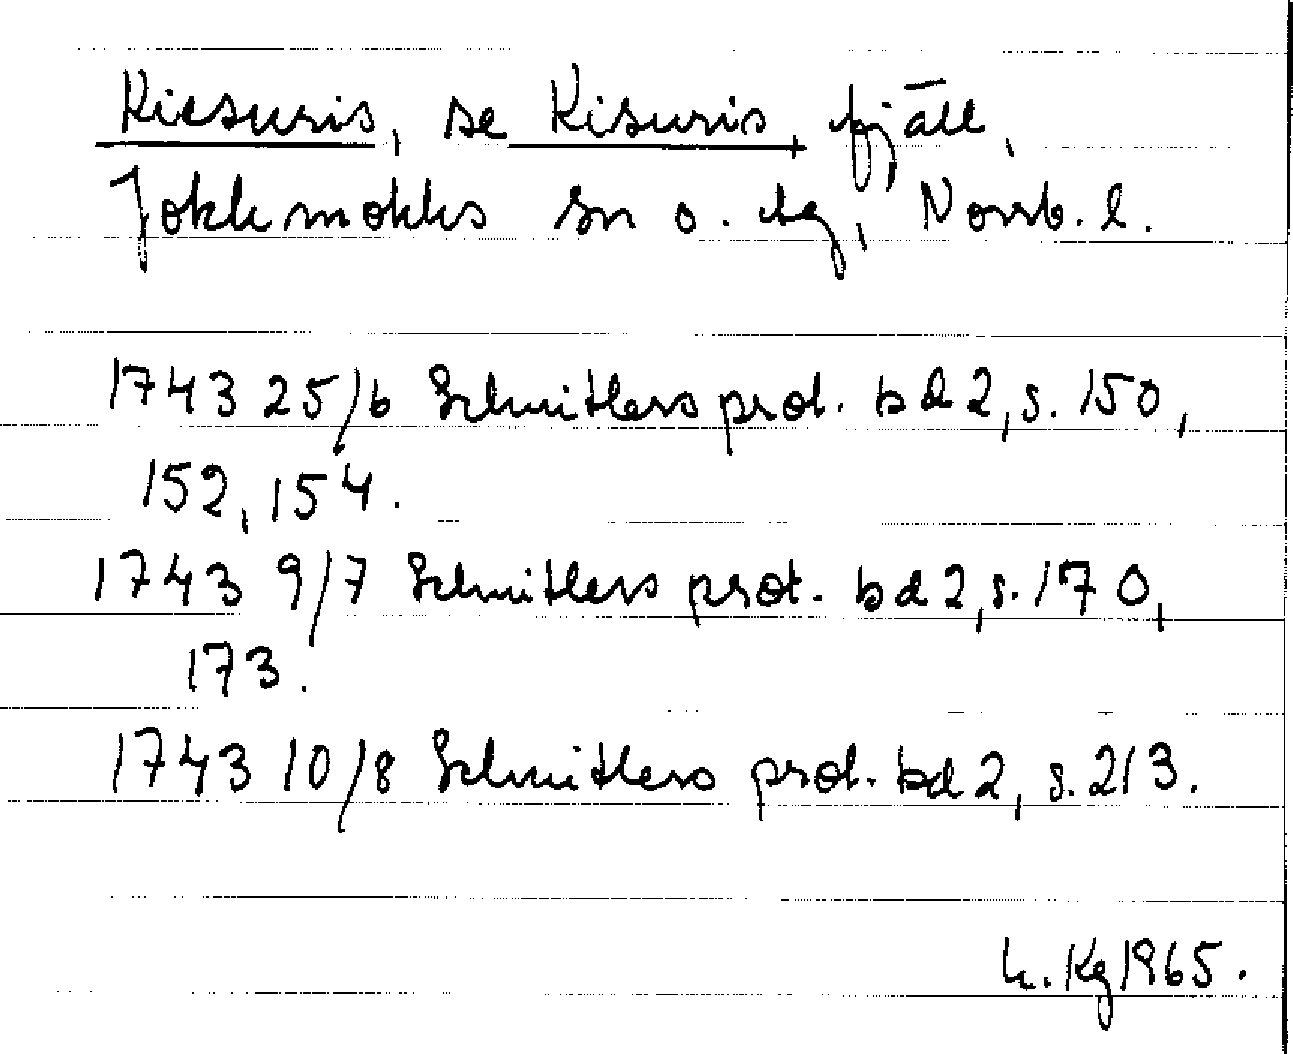 Kiesuris, se Kisuris, fjäll,
Jokkmokks sn o. tg, Norrb. l.
1743 25/6 Schnitlers prot. bd 2, s. 150,
152, 154.
1743 9/7 Schnitlers prot. bd 2, s. 170,
173.
1743 10/8 Schnitlers prot. bd 2, s. 213.
h. Kg 1965.